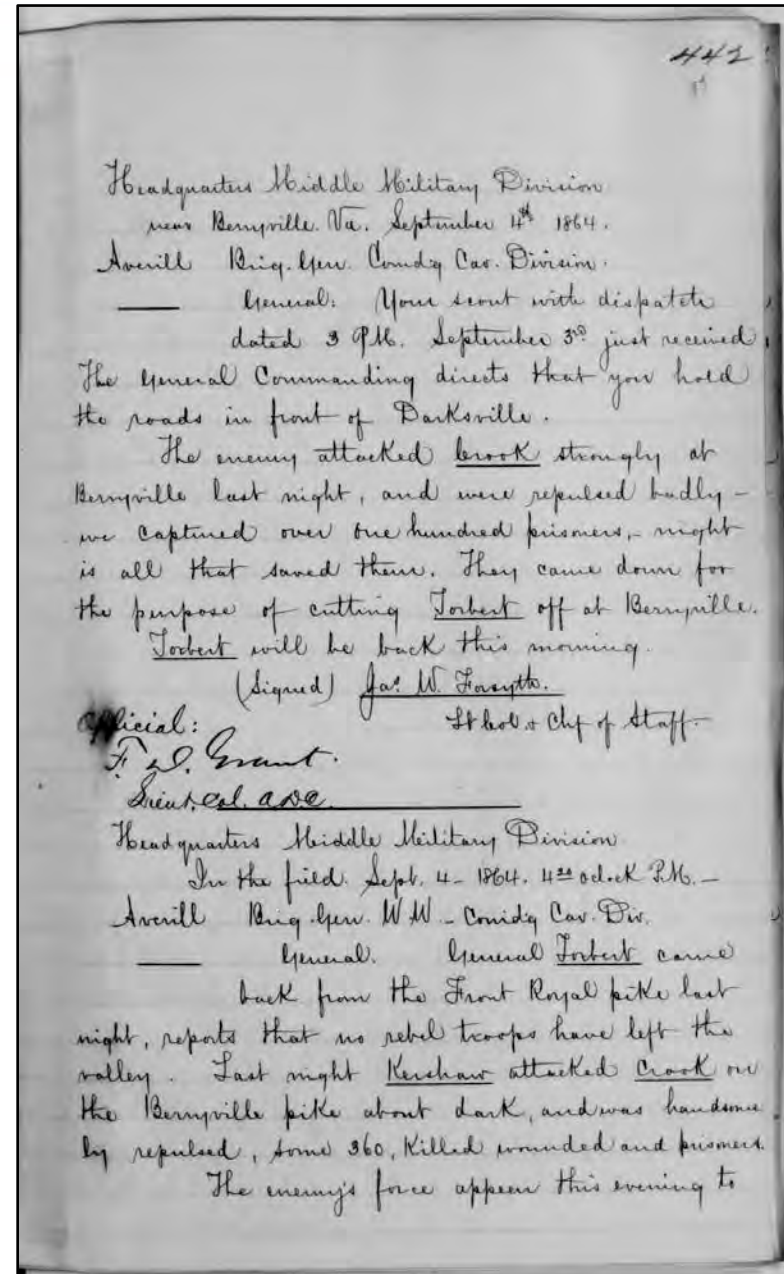 442
Headquarters Middle Military Division
near Berryville. Va. September 4th 1864.
Averill Brig. Gen. Comdg Cav. Division.
General: Your scout with dispatch
dated 3 P.M. September 3rd just received.
The General Commanding directs that you hold
the roads in front of Darksville.
The enemy attacked Crook strongly at
Berryville last night, and were repulsed badly –
we captured over one hundred prisoners, – night
is all that saved them. They came down for
the purpose of cutting Torbert off at Berryville.
Torbert will be back this morning.
(Signed) Jas. W. Forsyth.
Official: Lt Col. & Chf of Staff –
F. D. Grant.
Lieut. Col. ADC
Headquarters Middle Military Division
In the field. Sept. 4 – 1864. 4 30 oclock P.M. –
Averill Brig. Gen. W W – Comdg Cav. Div.
General. General Torbert came
back from the Front Royal pike last
night, reports that no rebel troops have left the
valley. Last night Kershaw attacked Crook on
the Berryville pike about dark, and was handsome
ly repulsed, some 360, killed wounded and prisoners.
The enemy's force appear this evening to